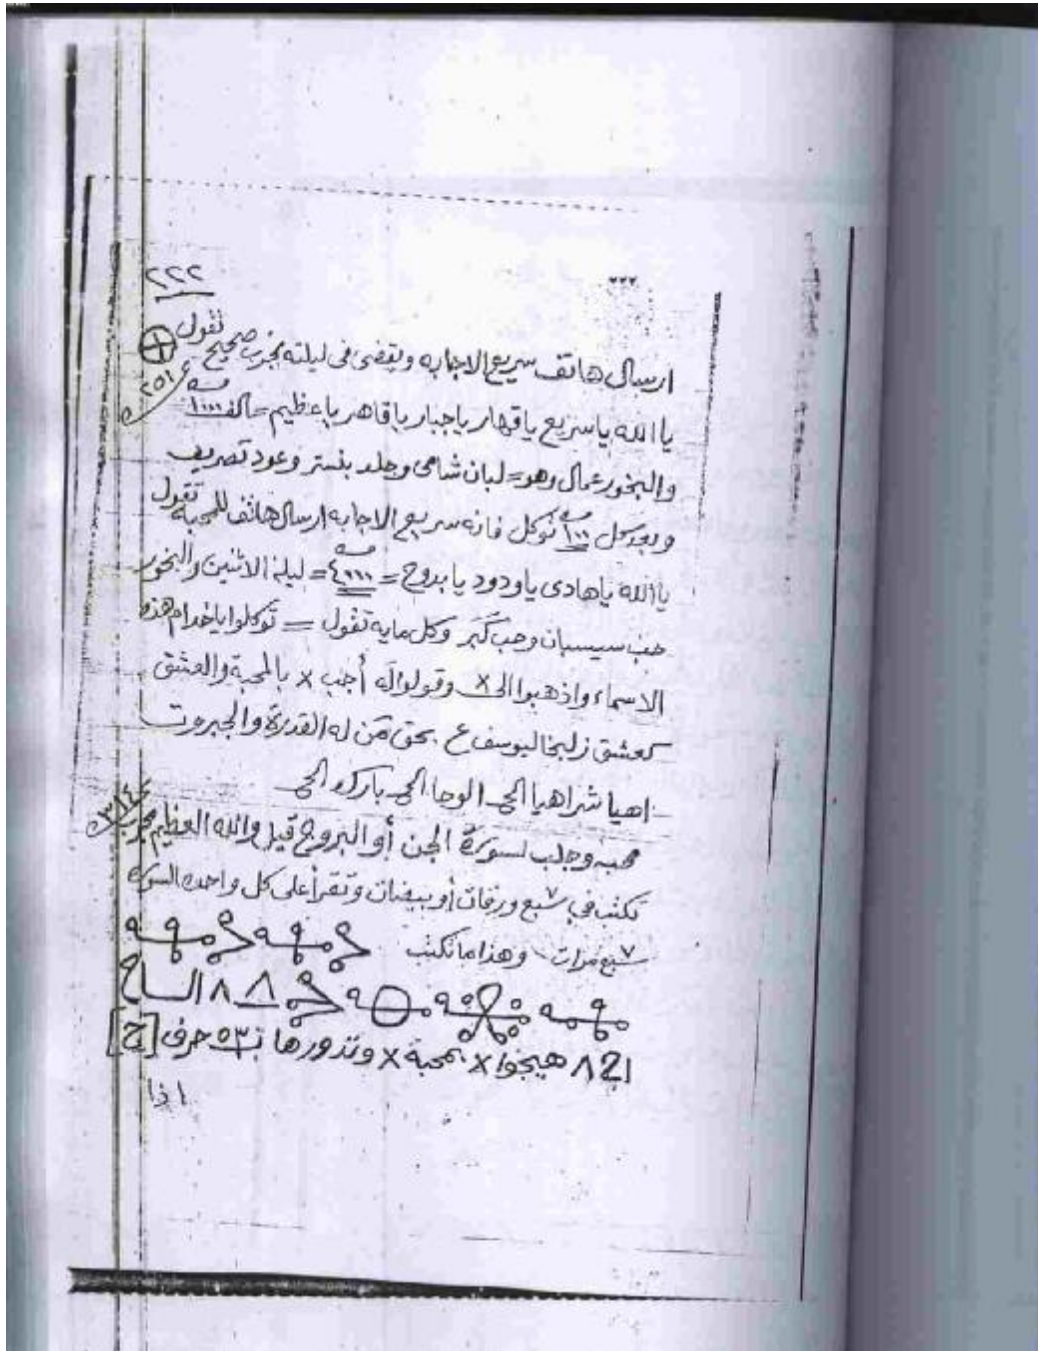 ٢٢٢
ارسال هاتف سريع الاجابه ويقضى فى ليلته مجرب صحيح تقول
يا الله يا سريع يا قهار يا جبار يا قاهر يا عظيم = بالف ١٠٠٠
والبخور عمال وهو = لبان شامى وجلد وعود تصريف
وبعد كل ١٠٠ توكل فانه سريع الاجابه ارسال هاتف للمحبة تقول
يا الله يا هادى يا ودود يا بدوح = ٤٠٠٠ = ليلة الاثنين والبخور
حب سيسبان وحب كبر وكل مايه تقول = توكلوا يا خدام هذه
الاسماء واذهبوا الى x وقولوا له أجب x بالمحبة والعشق
كعشق زليخا ليوسف ع بحق من له القدرة والجبروت
اهيا شراهيا الوحا
محبه وجلب لسورة الجن أو البروج قيل والله العظيم مجرب
تكتب في سبع ٧ ورقات أو بيضات وتقرأ على كل واحده السورة
سبع ٧ مرات وهذا ما تكتب
٨ هيجوا x بمحبة x وتدورها بـ ٥٣ حرف [ج]
اذا